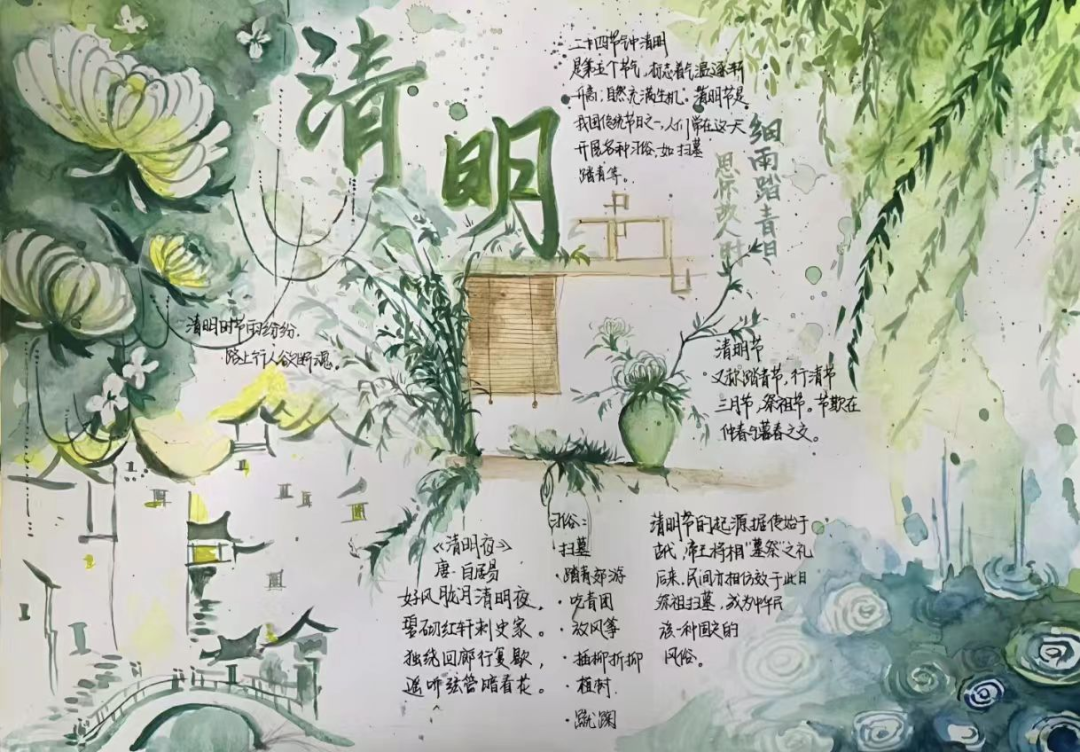 清明
二十四节钟清明
是第五个节气，标志着气温逐渐
升高，自然充满生机。清明节是
我国传统节日之一，人们常在这一天
开展各种习俗，如扫墓
踏青等。
细雨踏青日
思怀故人时
清明时节雨纷纷，
路上行人欲断魂。
清明节
又称踏青节，行清节
三月节，祭祖节。节期在
仲春与暮春之交。
《清明夜》
唐·白居易
好风胧月清明夜，
碧砌红轩刺史家。
独绕回廊行复歇，
遥听弦管暗看花。
习俗：
·扫墓
·踏青郊游
·吃青团
·放风筝
·插柳折柳
·植树
·蹴鞠
清明节的起源，据传始于
古代，帝王将相“墓祭”之礼
后来，民间亦相仿效于此日
祭祖扫墓，成为中华民
族一种固定的
风俗。